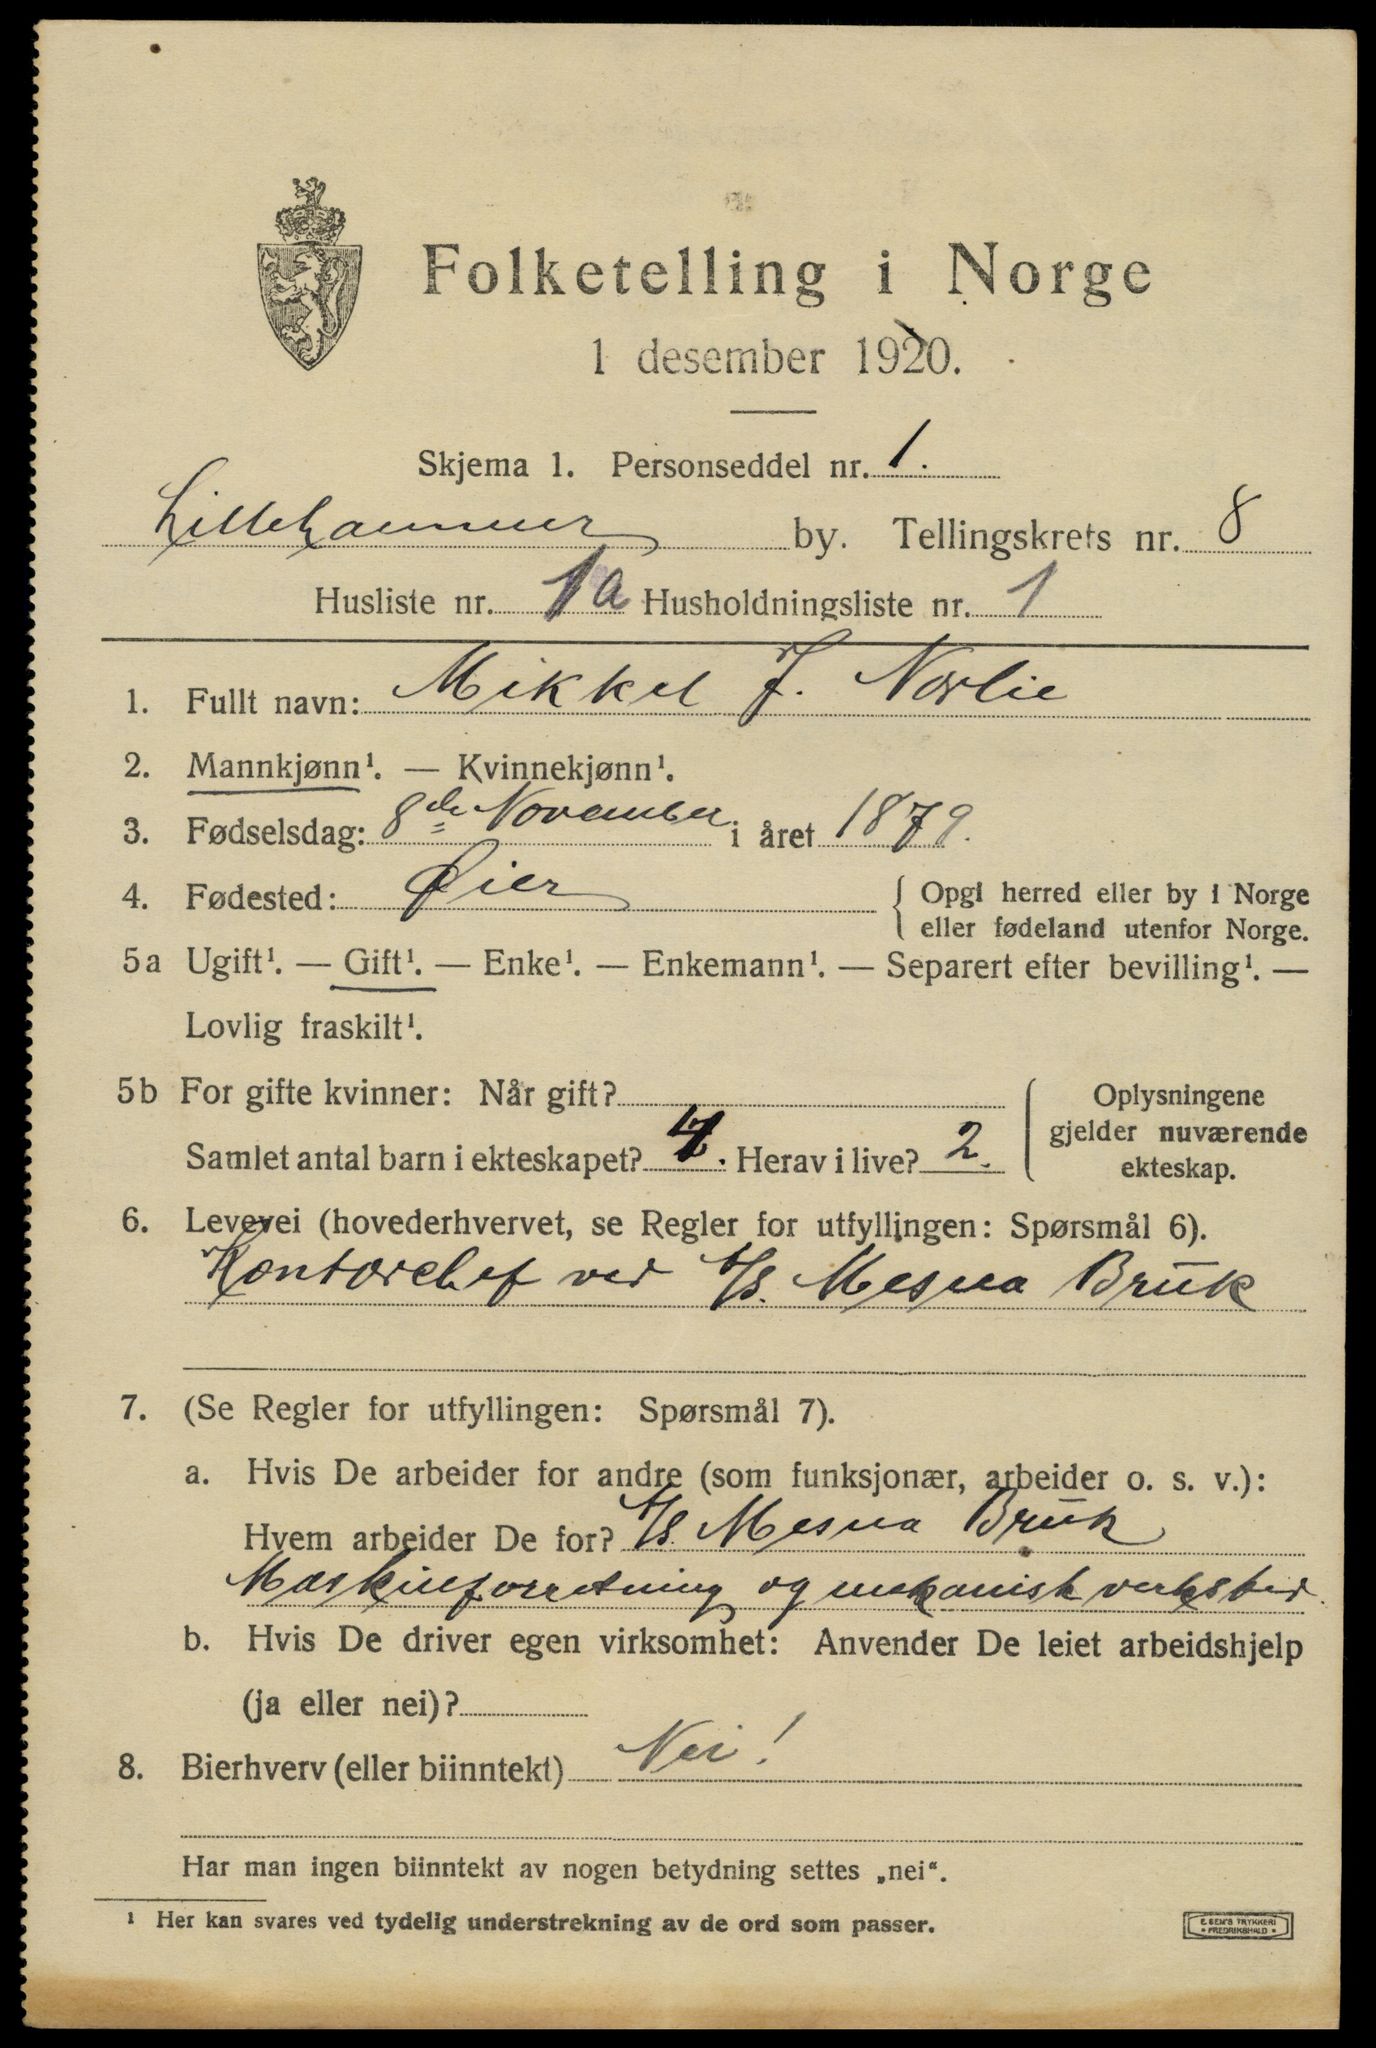 Folketelling i Norge
1 desember 1920.
Skjema 1. Personseddel nr. 1.
Lillehammer by. Tellingskrets nr. 8
Husliste nr. 1a Husholdningsliste nr. 1
1. Fullt navn: Mikkel J. Norlie
2. Mannkjønn¹. — Kvinnekjønn¹.
3. Fødselsdag: 8de November i året 1879.
4. Fødested: Øier { Opgi herred eller by i Norge
eller fødeland utenfor Norge.
5a Ugift¹. — Gift¹. — Enke¹. — Enkemann¹. — Separert efter bevilling¹. —
Lovlig fraskilt¹.
5b For gifte kvinner: Når gift?
Samlet antal barn i ekteskapet? . Herav i live? 2.
Oplysningene
gjelder nuværende
ekteskap.
6. Levevei (hovederhvervet, se Regler for utfyllingen: Spørsmål 6).
Kontorchef ved A/S. Mesna Bruk
7. (Se Regler for utfyllingen: Spørsmål 7).
a. Hvis De arbeider for andre (som funksjonær, arbeider o. s. v.):
Hvem arbeider De for? A/S. Mesna Bruk
Maskinforretning og mekanisk verksted.
b. Hvis De driver egen virksomhet: Anvender De leiet arbeidshjelp
(ja eller nei)?
8. Bierhverv (eller biinntekt) Nei!
Har man ingen biinntekt av nogen betydning settes „nei“.
¹ Her kan svares ved tydelig understrekning av de ord som passer.
E. SEM'S TRYKKERI
• FREDRIKSHALD •